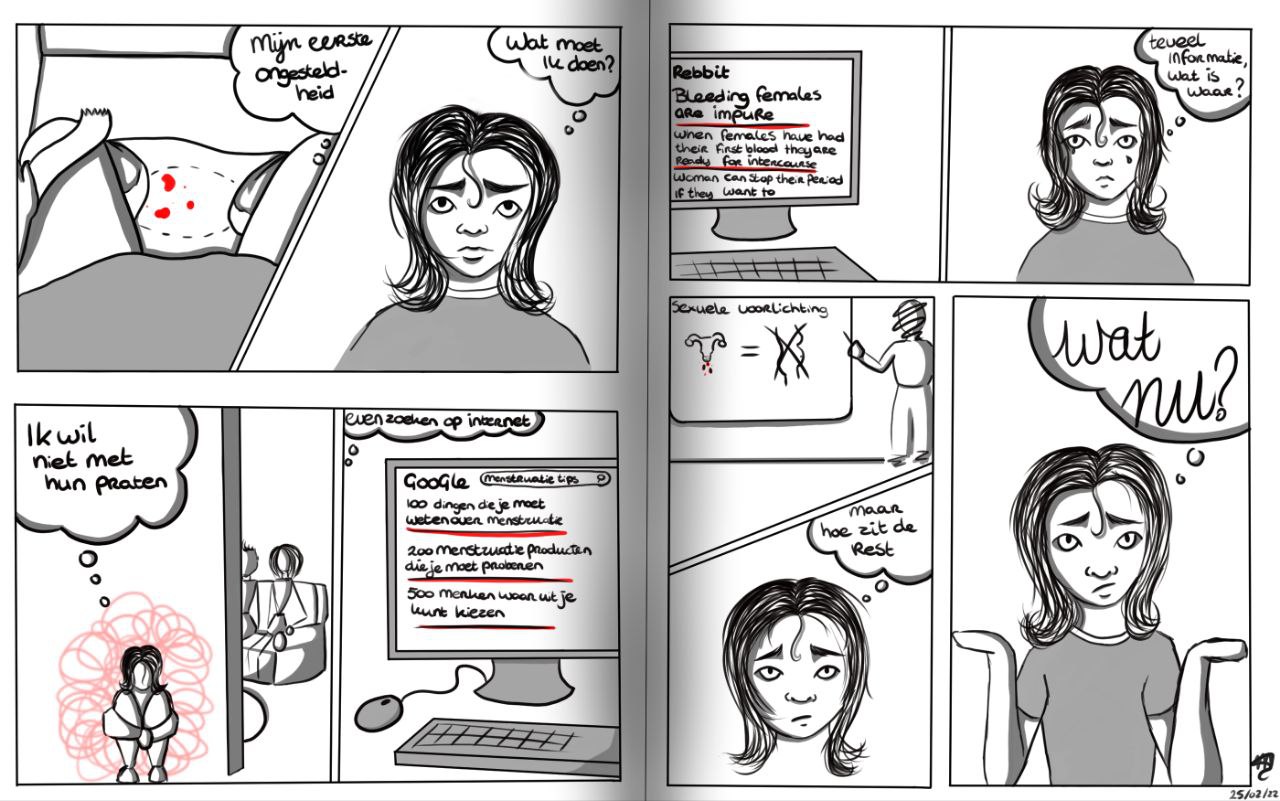 Mijn eerste
ongesteld-
heid
Wat moet
ik doen?
Ik wil
niet met
hun praten
even zoeken op internet
GooGle
menstruatie tips
100 dingen die je moet
weten over menstruatie
200 menstruatie producten
die je moet proberen
500 merken waar uit je
kunt kiezen
Rebbit
Bleeding females
are impure
When females have had
their first blood they are
Ready for intercourse
Woman can stop their period
if they want to
teveel
informatie,
wat is
waar?
Sexuele voorlichting
=
maar
hoe zit de
Rest
Wat
nu?
25/02/22